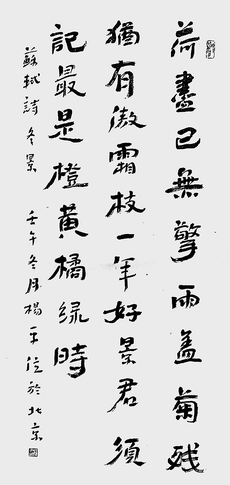 荷盡已無擎雨盖菊残
猶有傲霜枝一年好景君須
記最是橙黄橘緑時
蘇軾詩冬景 壬午冬月楊平於北京